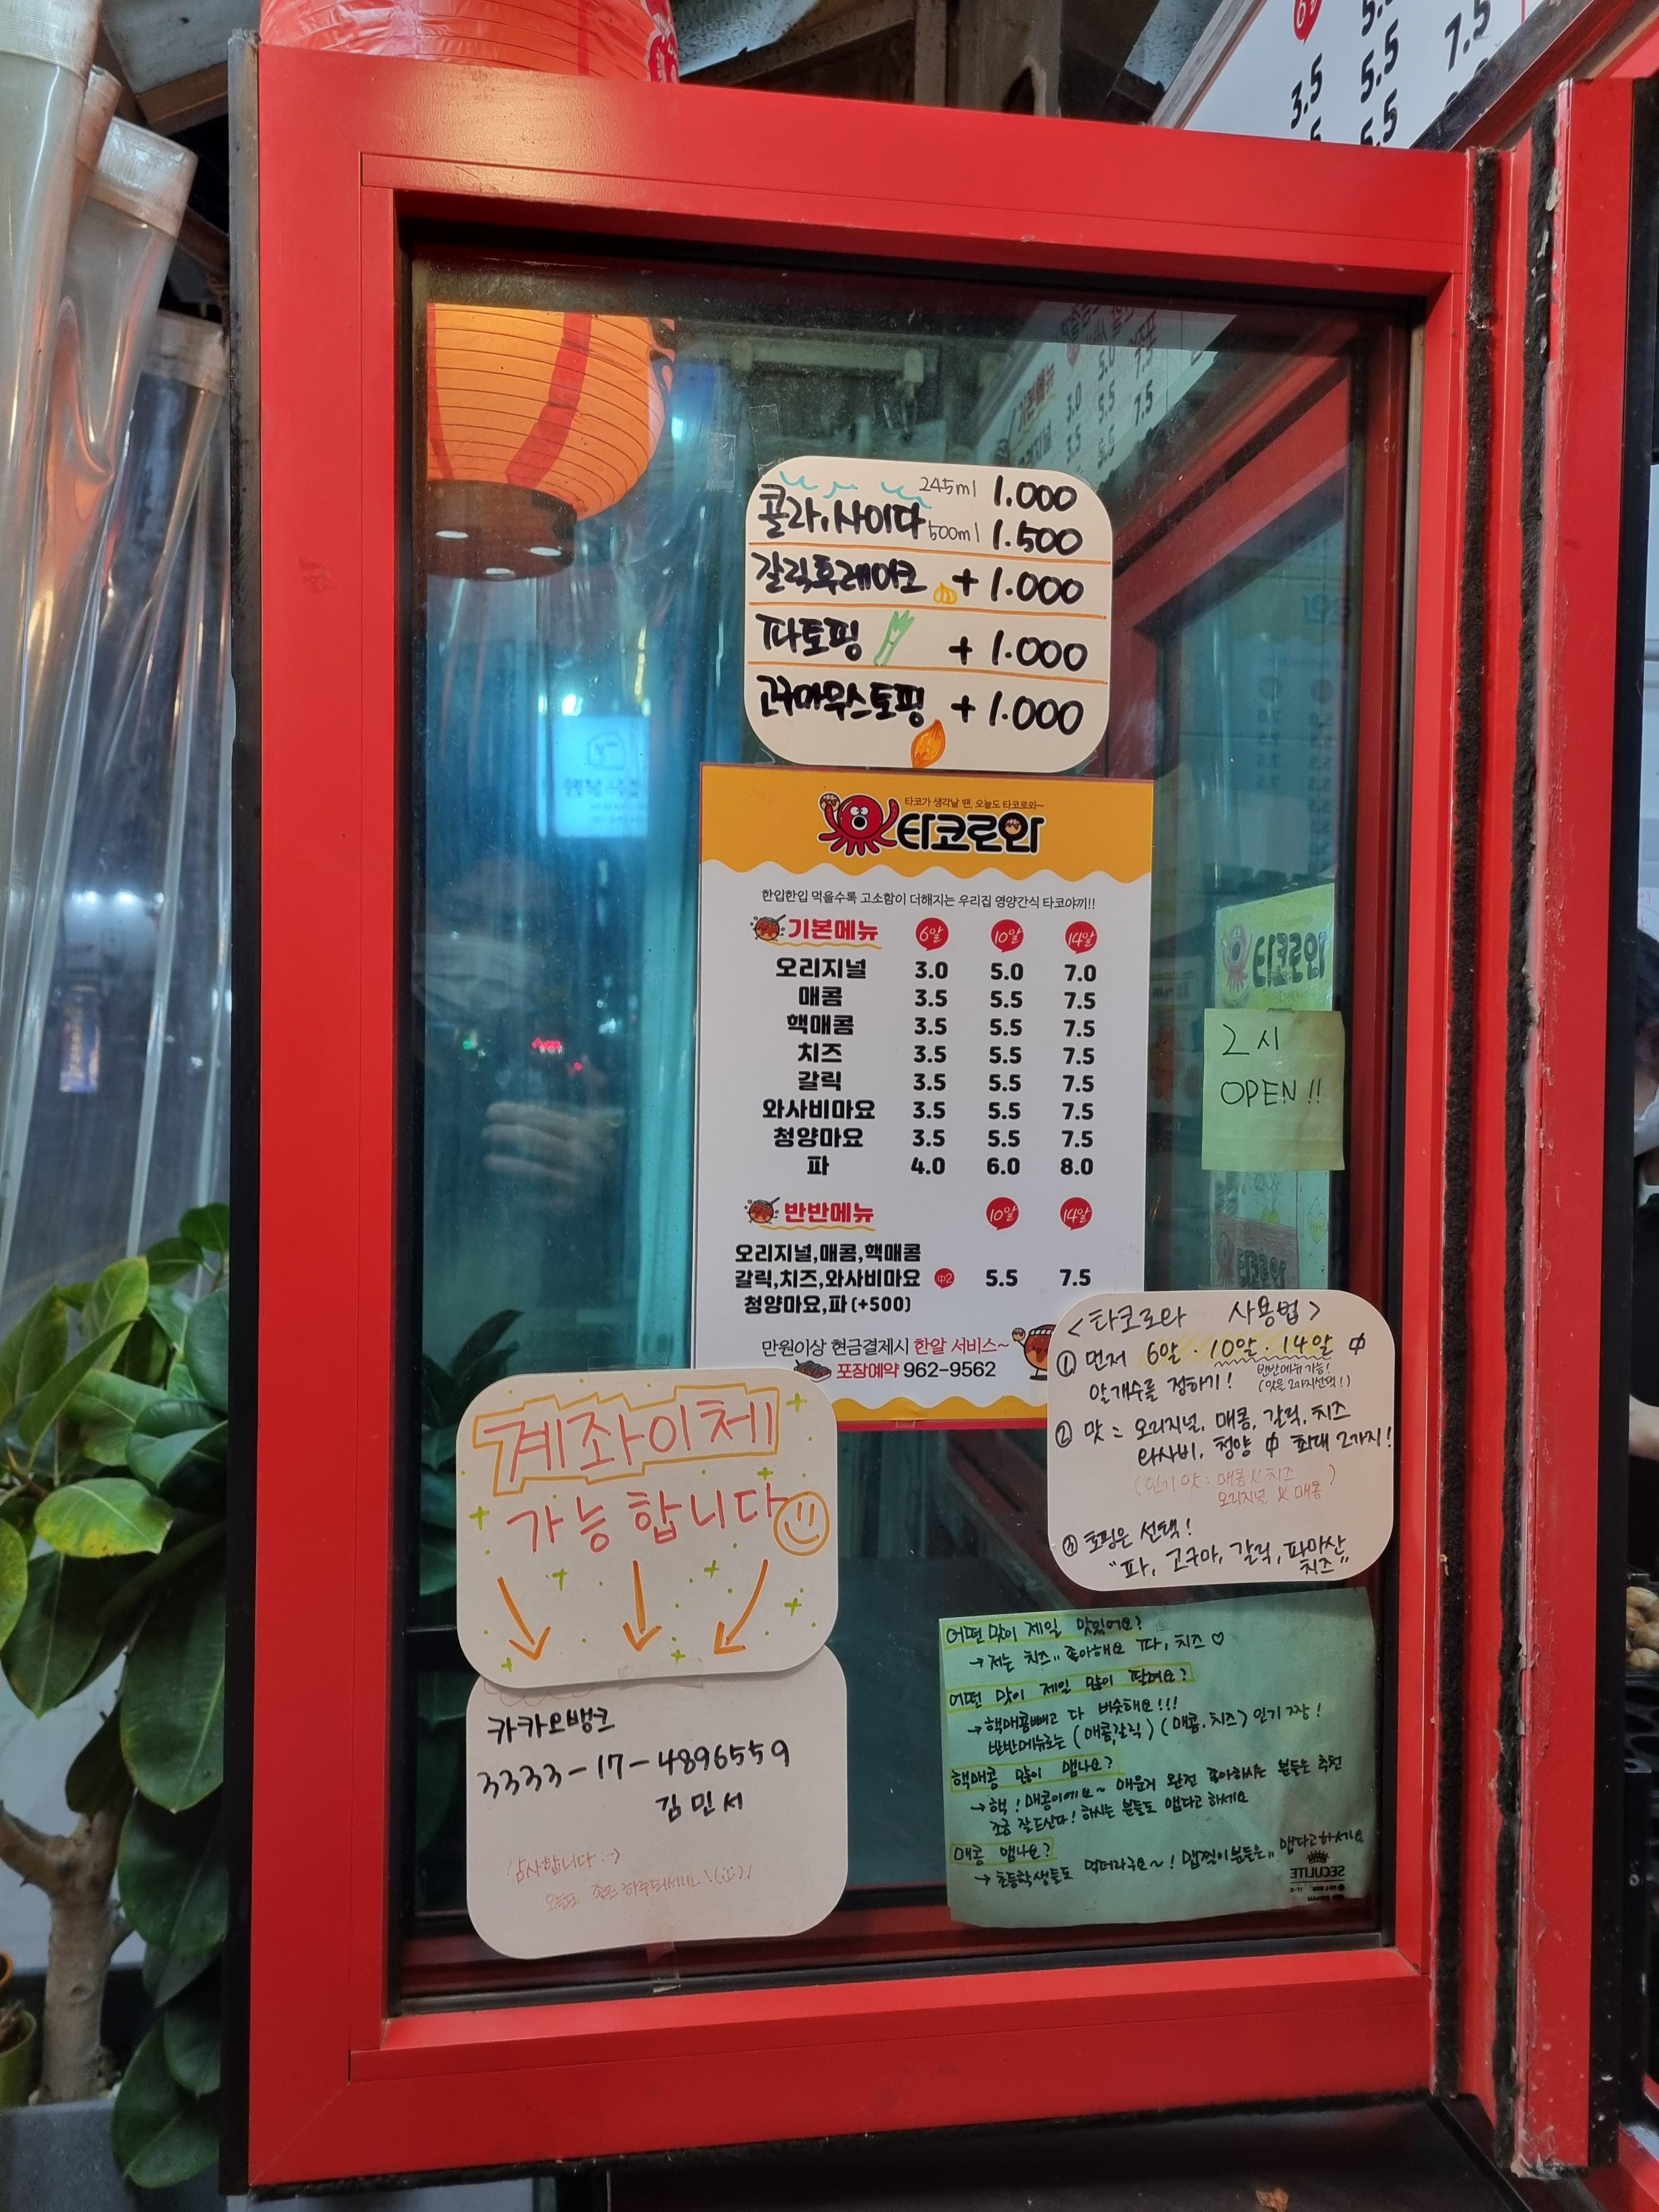 245ml 1.000
콜라,사이다 500ml 1.500
갈릭후레이크 + 1.000
파토핑 + 1.000
고구마무스토핑 + 1.000
타코가 생각날 땐, 오늘도 타코로와~
타코로와
한입한입 먹을수록 고소함이 더해지는 우리집 영양간식 타코야끼!!
기본메뉴 6알 10알 14알
오리지널 3.0 5.0 7.0
매콤 3.5 5.5 7.5
핵매콤 3.5 5.5 7.5
치즈 3.5 5.5 7.5
갈릭 3.5 5.5 7.5
와사비마요 3.5 5.5 7.5
청양마요 3.5 5.5 7.5
파 4.0 6.0 8.0
반반메뉴 10알 14알
오리지널,매콤,핵매콤
갈릭,치즈,와사비마요 中2 5.5 7.5
청양마요,파(+500)
만원이상 현금결제시 한알 서비스~
포장예약 962-9562
2시
OPEN!!
<타코로와 사용법>
① 먼저 6알 · 10알 · 14알 中
알개수를 정하기!
반반메뉴 가능!
(맛은 2가지선택!)
② 맛 : 오리지널, 매콤, 갈릭, 치즈
와사비, 청양 中 최대 2가지!
(인기 맛 : 매콤 & 치즈
오리지널 & 매콤)
③ 토핑은 선택!
"파, 고구마, 갈릭, 파마산
치즈"
계좌이체
가능합니다
카카오뱅크
3333-17-4896559
김민서
감사합니다 :-)
오늘도 좋은 하루되세요
어떤 맛이 제일 맛있어요?
→ 저는 치즈.. 좋아해요 파, 치즈 ♡
어떤 맛이 제일 많이 팔려요?
→ 핵매콤빼고 다 비슷해요!!!
반반메뉴로는 (매콤,갈릭) (매콤, 치즈) 인기 짱!
핵매콤 많이 맵나요?
→ 핵! 매콤이에요~ 매운거 완전 좋아하시는 분들은 추천
조금 잘드신다! 하시는 분들도 맵다고 하세요
매콤 맵나요?
→ 초등학생들도 먹더라구요~! 맵찔이분들은.. 맵다고하세요
SECULITE
6알
7.5
3.5 5.5
5.5